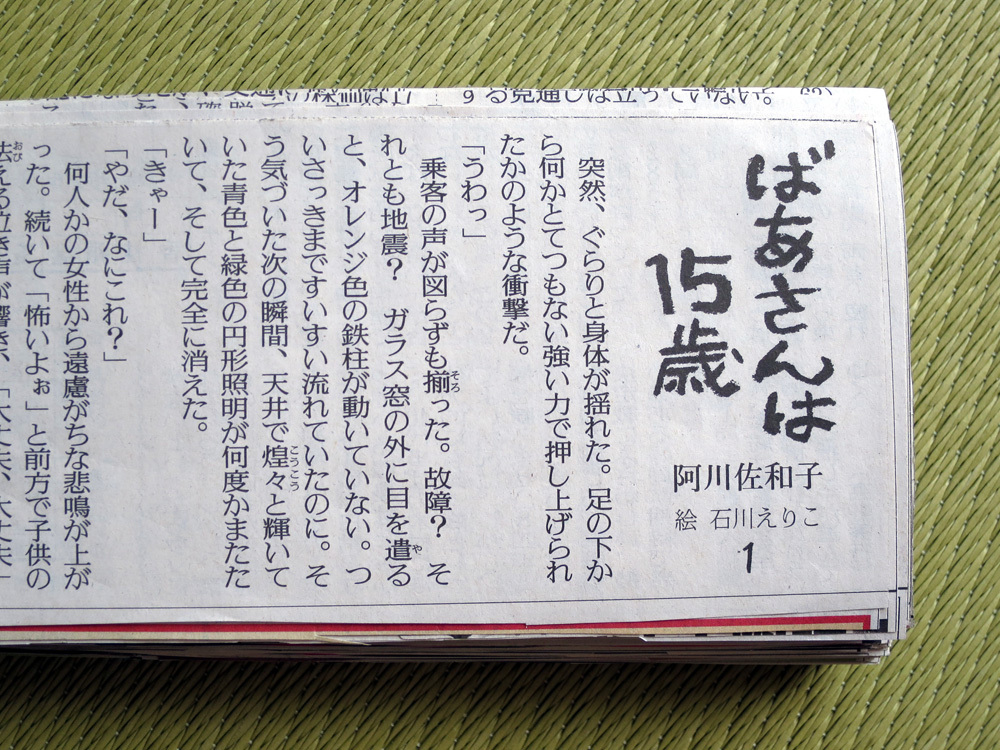 ばあさんは
15歳
阿川佐和子
絵 石川えりこ
1
突然、ぐらりと身体が揺れた。足の下か
ら何かとてつもない強い力で押し上げられ
たかのような衝撃だ。
「うわっ」
乗客の声が図らずも揃った。故障? そ
れとも地震? ガラス窓の外に目を遣る
と、オレンジ色の鉄柱が動いていない。つ
いさっきまですいすい流れていたのに。そ
う気づいた次の瞬間、天井で煌々と輝いて
いた青色と緑色の円形照明が何度かまたた
いて、そして完全に消えた。
「きゃー」
「やだ、なにこれ?」
何人かの女性から遠慮がちな悲鳴が上が
った。続いて「怖いよぉ」と前方で子供の
怯える泣き声が響き、「大丈夫、大丈夫」
9 る見通しは立っていない。